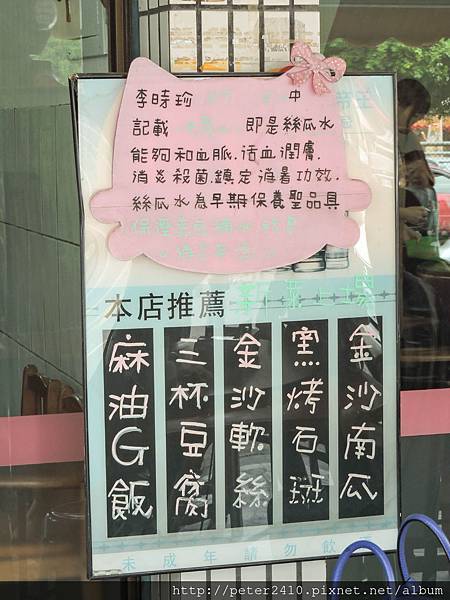 李時珍 中
記載 即是絲瓜水
能夠和血脈.活血潤膚.
消炎殺菌.鎮定消暑功效.
絲瓜水為早期保養聖品具
本店推薦
麻油G飯
三杯豆腐
金沙軟絲
窯烤石斑
金沙南瓜
未成年請勿飲
http://peter2410.pixnet.net/album